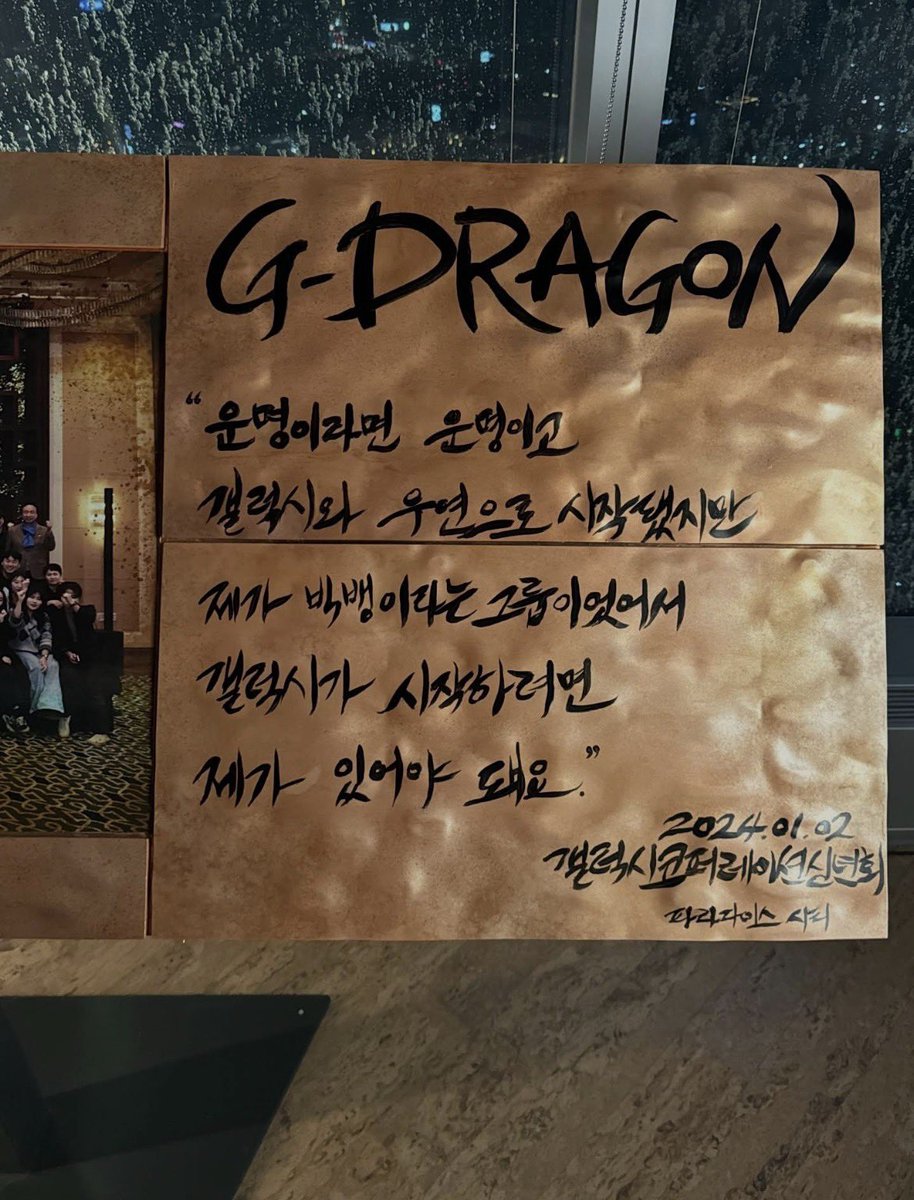 G-DRAGON
“운명이라면 운명이고
갤럭시와 우연으로 시작됐지만
제가 빅뱅이라는 그룹이었어서
갤럭시가 시작하려면
제가 있어야 돼요.”
2024.01.02
갤럭시코퍼레이션신년회
파라다이스 시티